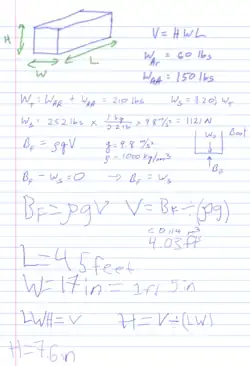 H
W
L
V = HWL
W_Ar = 60 lbs
W_AA = 150 lbs
W_T = W_AR + W_AA = 210 lbs W_S = 1.20) W_T
W_S = 252 lbs × 1 kg / 2.2 lb × 9.8 m/s² = 1121 N
B_F = ρgV g = 9.8 m/s²
ρ = 1000 kg/m³
Boat
W_S
B_F
B_F - W_S = 0 → B_F = W_S
B_F = ρgV V = B_F ÷ (ρg)
= 0.114 m³
4.03 ft³
L = 4.5 feet
W = 17 in = 1ft 5in
LWH = V H = V ÷ (LW)
H = 7.6 in